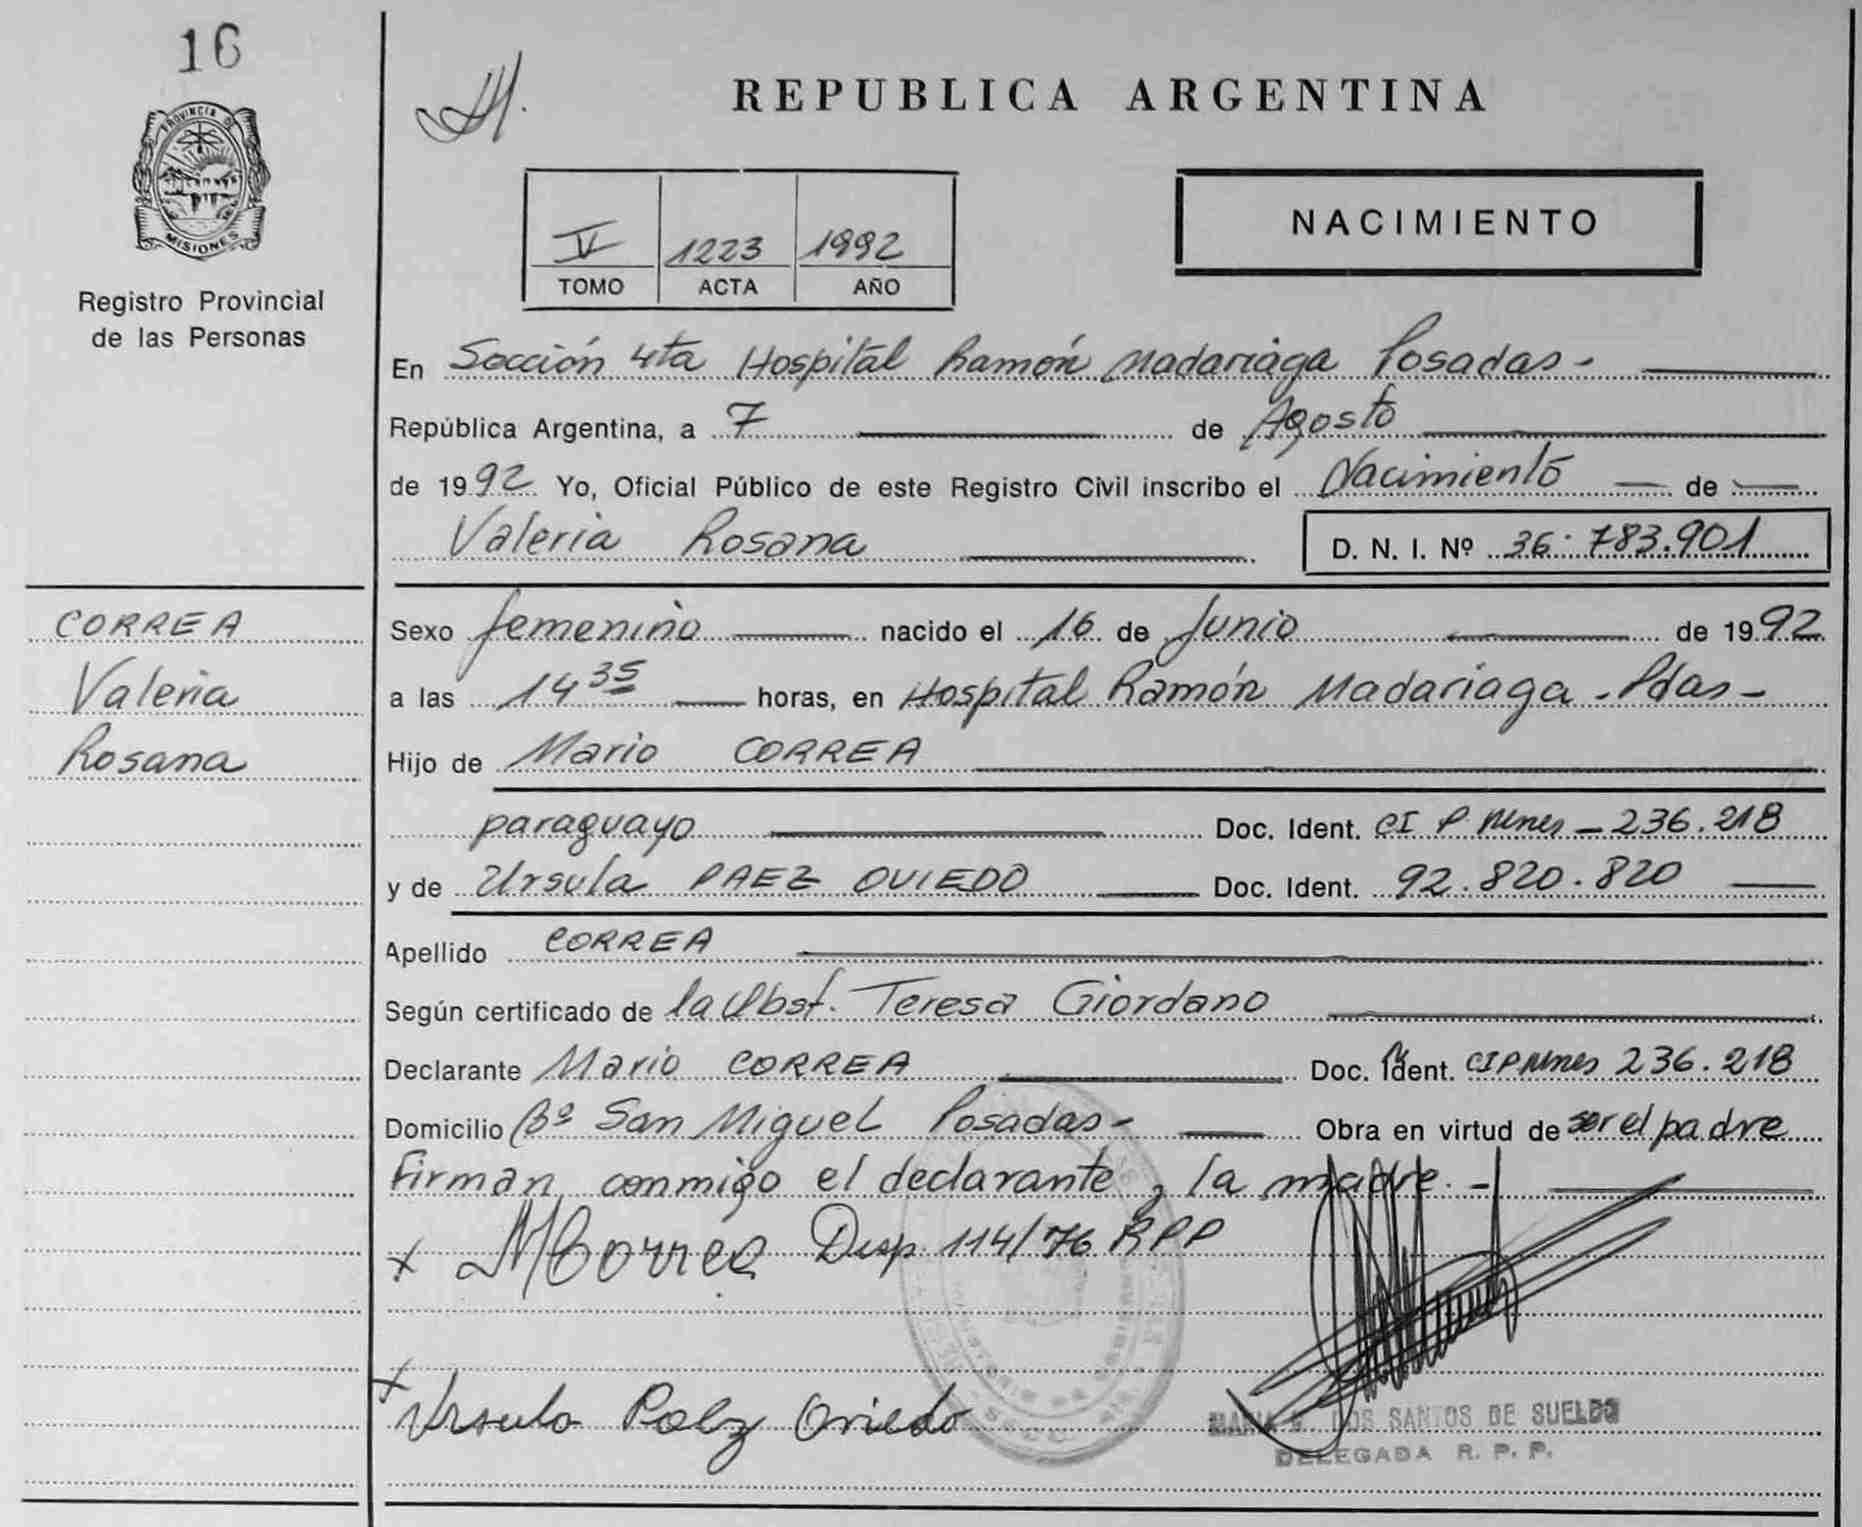 16
PROVINCIA DE
MISIONES
Registro Provincial
de las Personas
REPUBLICA ARGENTINA
V 1223 1992
TOMO ACTA AÑO
NACIMIENTO
En Sección 4ta Hospital Ramón Madariaga Posadas-
República Argentina, a 7 de Agosto
de 1992 Yo, Oficial Público de este Registro Civil inscribo el Nacimiento de
Valeria Rosana D. N. I. Nº 36.783.901
CORREA
Valeria
Rosana
Sexo femenino nacido el 16 de Junio de 1992
a las 14 35 horas, en Hospital Ramón Madariaga - Pdas-
Hijo de Mario CORREA
paraguayo Doc. Ident. CI P Mnes - 236.218
y de Ursula PAEZ OVIEDO Doc. Ident. 92.820.820
Apellido CORREA
Según certificado de la Obst. Teresa Giordano
Declarante Mario CORREA Doc. Ident. CIP Mnes 236.218
Domicilio Bº San Miguel Posadas- Obra en virtud de ser el padre
Firman conmigo el declarante, la madre.-
x MCorrea Disp. 114/76 RPP
x Ursula Paez Oviedo
DOS SANTOS DE SUELDO
DELEGADA R. P. P.